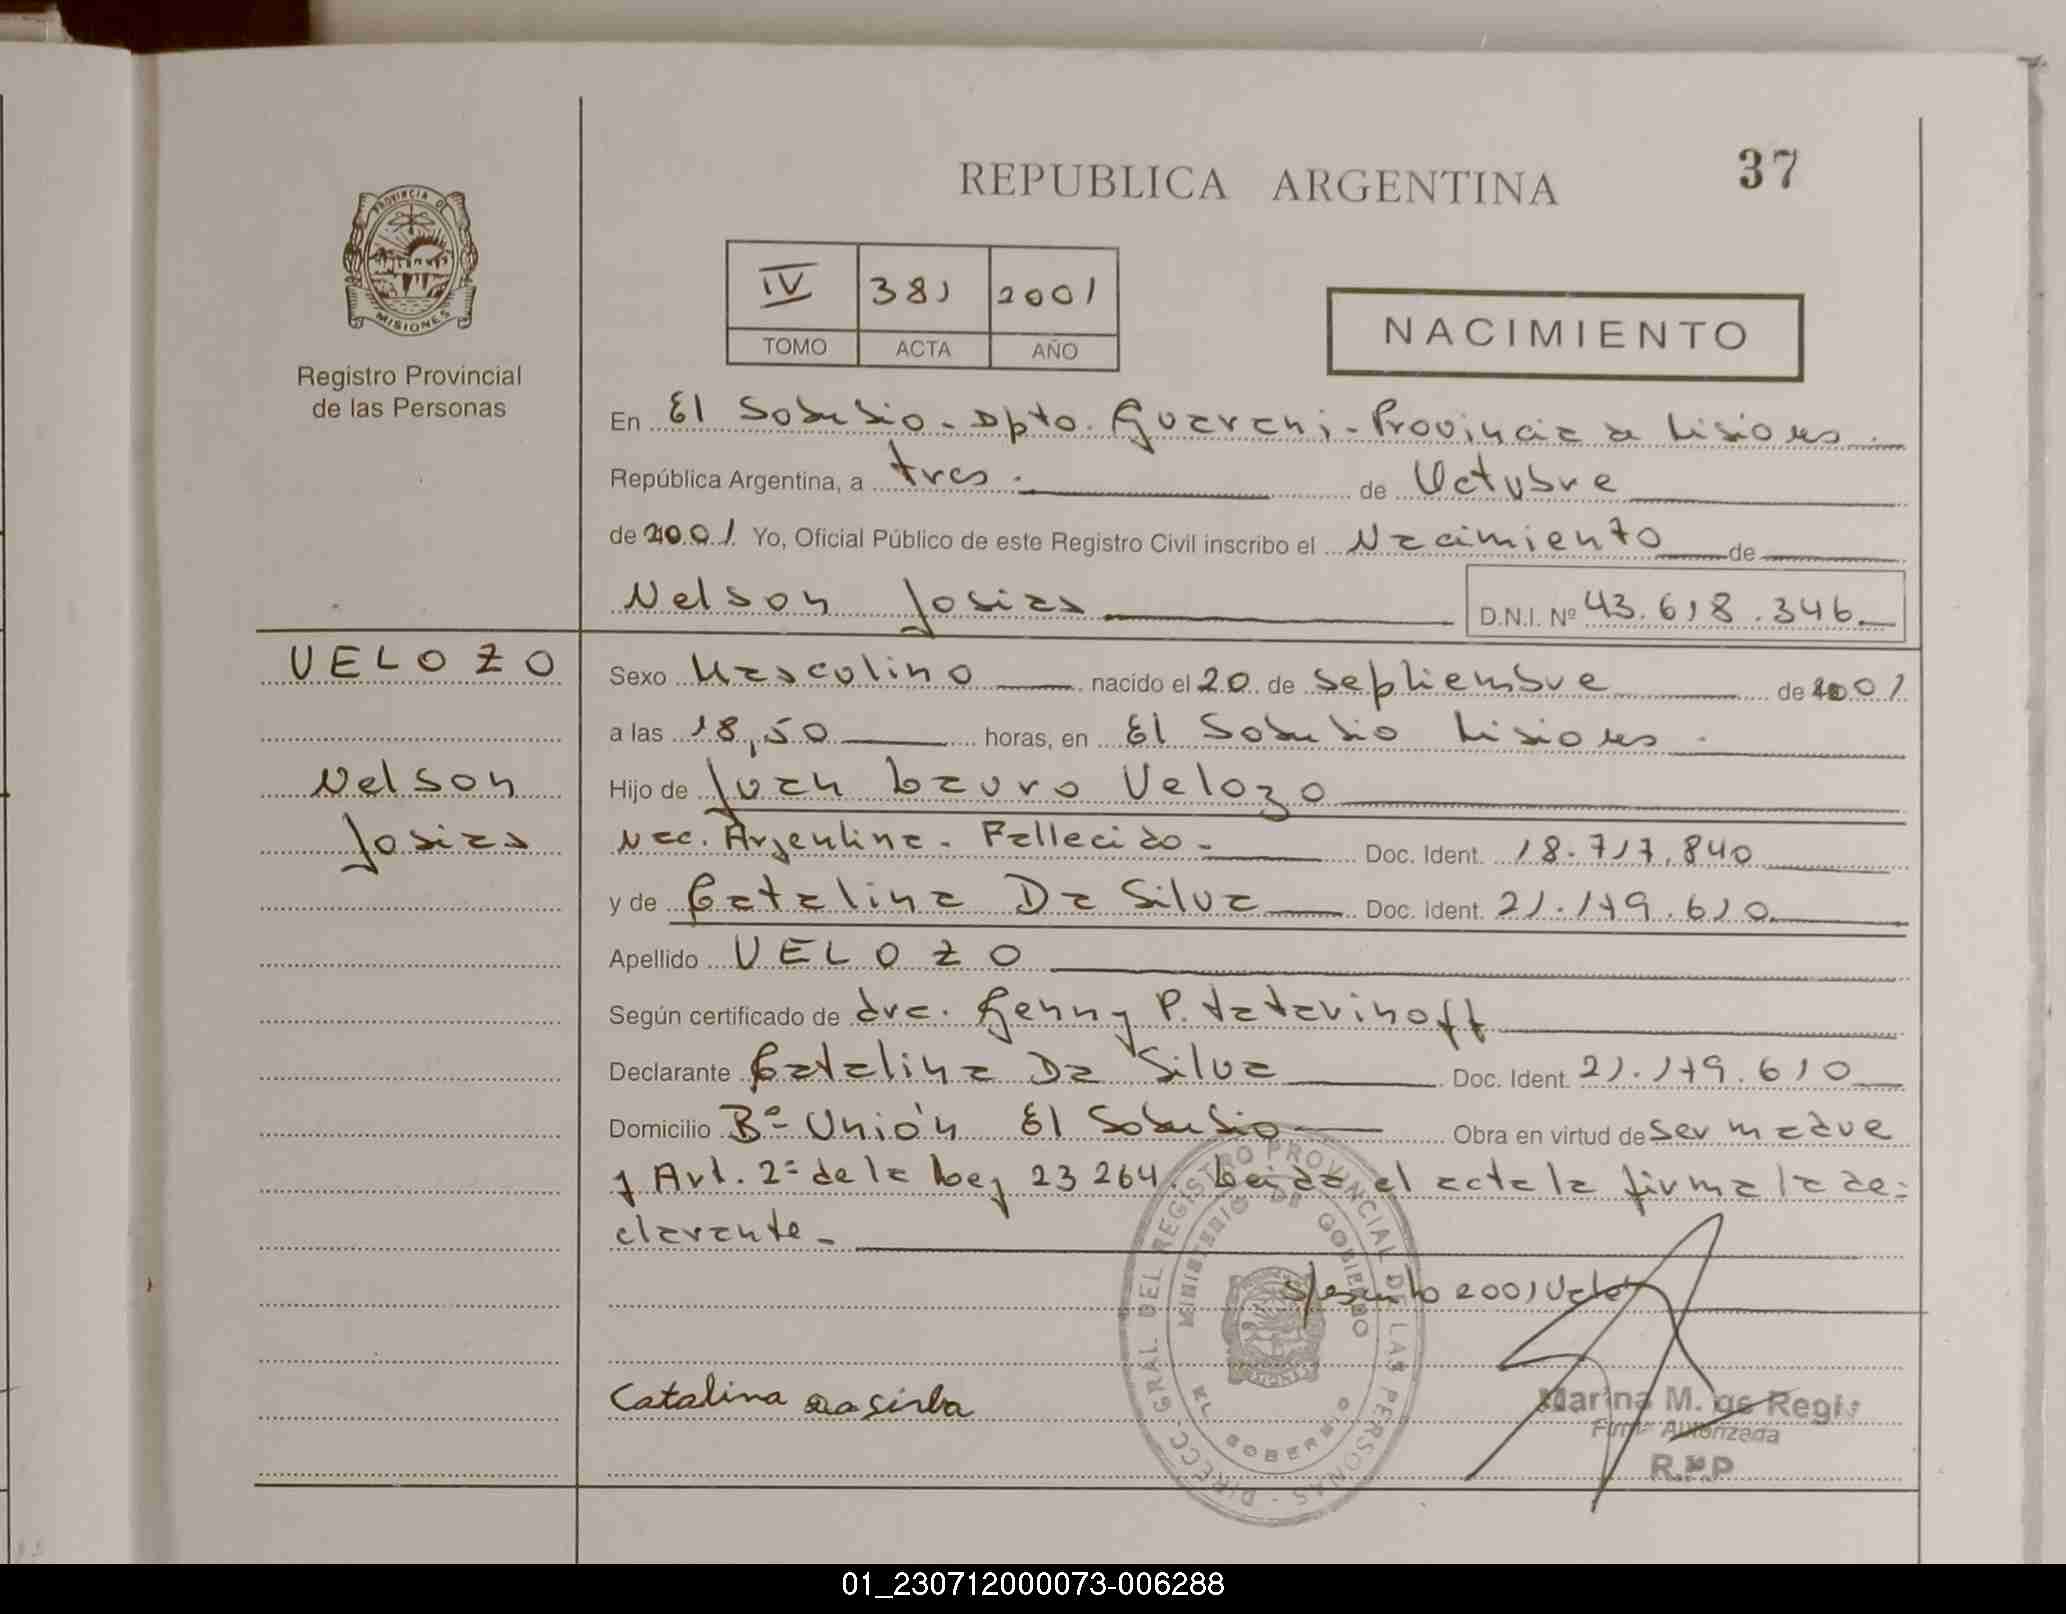 REPUBLICA ARGENTINA
37
PROVINCIA DE
MISIONES
Registro Provincial
de las Personas
IV 381 2001
TOMO ACTA AÑO
NACIMIENTO
En El Soberbio - Dpto. Guarani - Provincia de Misiones.
República Argentina, a tres. de Octubre
de 2001 Yo, Oficial Público de este Registro Civil inscribo el Nacimiento de
Nelson Josias D.N.I. Nº 43.618.346
VELOZO
Nelson
Josias
Sexo Masculino nacido el 20 de septiembre de 2001
a las 18,50 horas, en El Soberbio Misiones.
Hijo de Juan Lauro Velozo
Nac. Argentina - Fallecido - Doc. Ident. 18.717.840
y de Catalina Da Silva Doc. Ident. 21.179.610
Apellido VELOZO
Según certificado de dra. Genny P. Tatarinoff
Declarante Catalina Da Silva Doc. Ident. 21.179.610
Domicilio Bº Unión El Soberbio Obra en virtud de ser madre
y Art. 2º de la Ley 23264. Leida el acta la firma la de-
clarante -
2001 Vale
Catalina da silva
DIRECC. GRAL DEL REGISTRO PROVINCIAL DE LAS PERSONAS
MINISTERIO DE GOBIERNO
EL SOBERBIO
Marina M. de Regis
Firma Autorizada
R.P.P
01_230712000073-006288